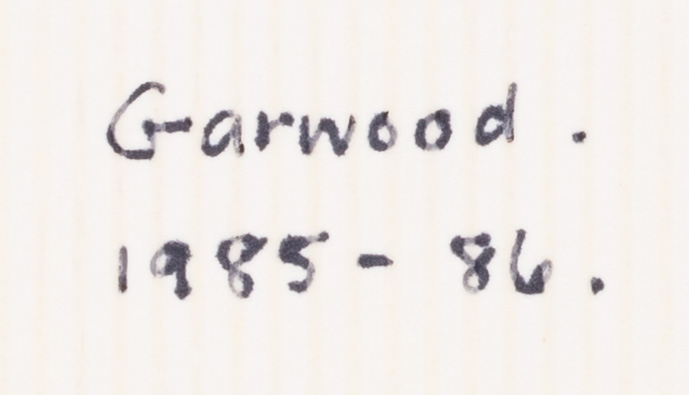 Garwood.
1985-86.